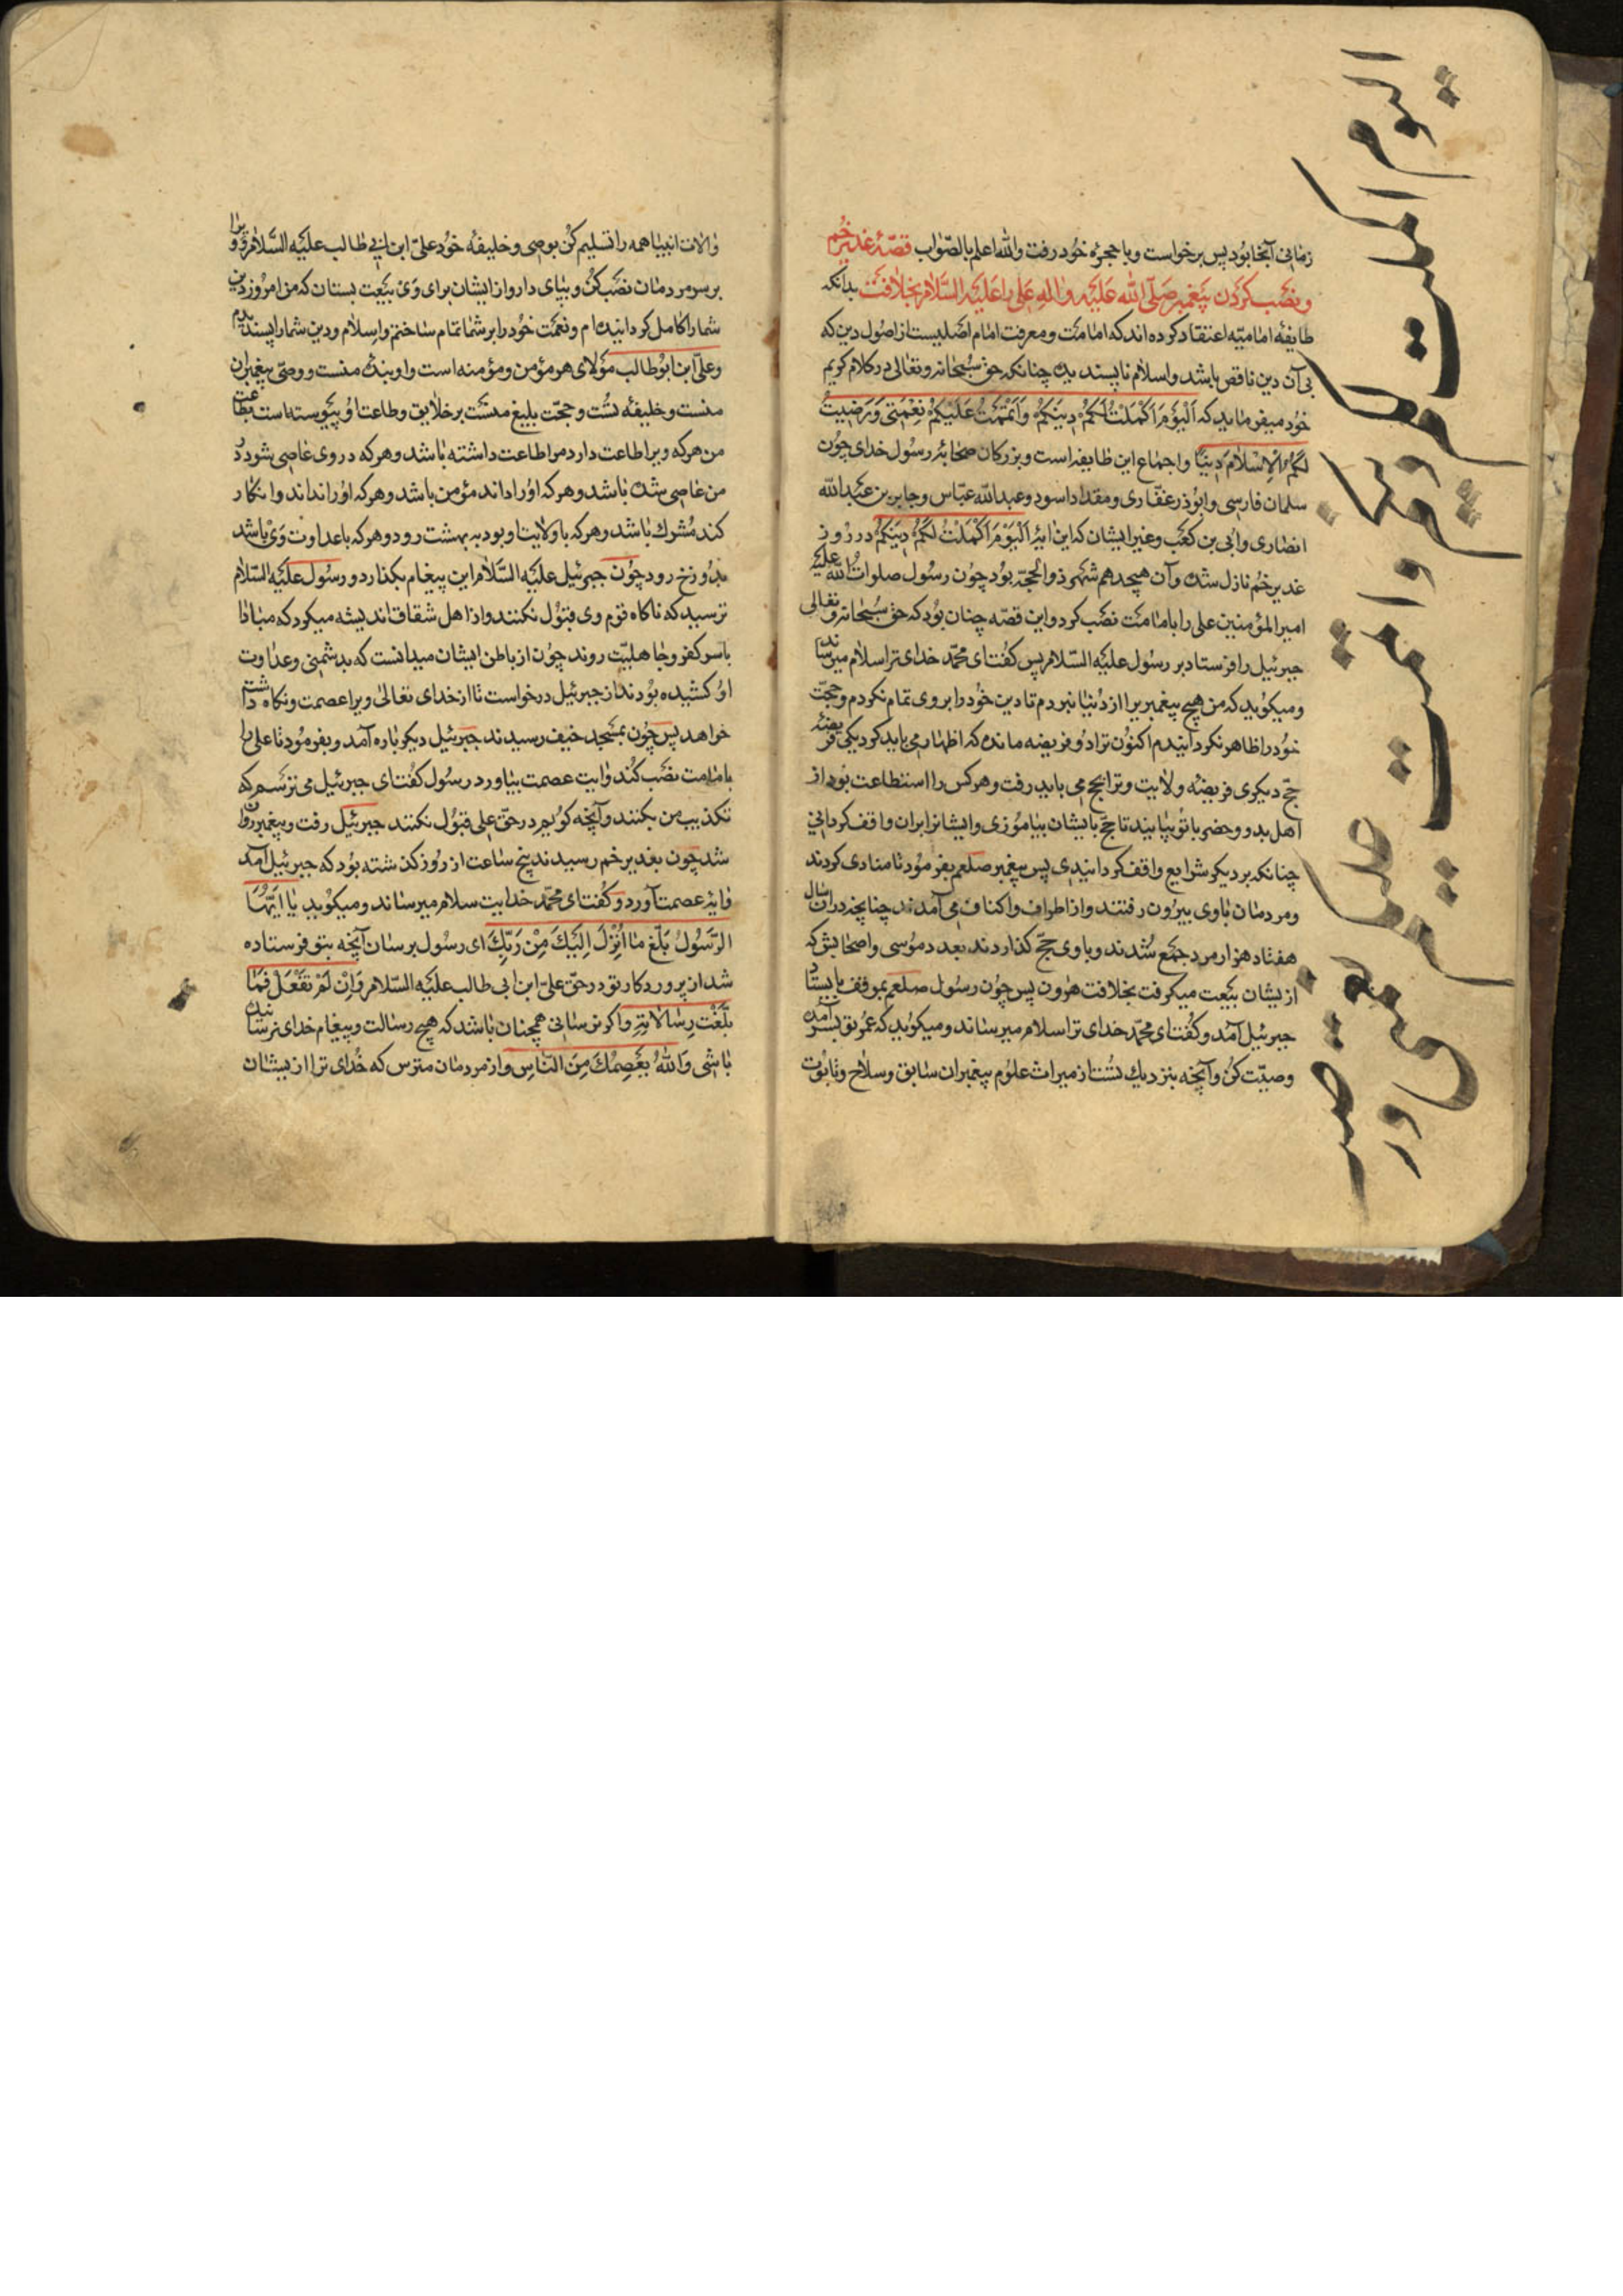 زمانی آنجا بود پس برخواست و با حجرۀ خود رفت والله اعلم بالصّواب قصّۀ غدیر خم
و نصب کردن پیغمبر صلّی الله علیه واله علی را علیه السّلام بخلافت بدانکه
طایفۀ امامیّه اعتقاد کرده اند که امامت و معرفت امام اصلیست از اصول دین که
بی آن دین ناقص باشد و اسلام ناپسندیده چنانکه حق سبحانه و تعالی در کلام کریم
خود میفرماید که اَلْیَوْمَ اَکْمَلْتُ لَکُمْ دِینَکُمْ وَاَتْمَمْتُ عَلَیْکُمْ نِعْمَتِی وَرَضِیتُ
لَکُمُ الْاِسْلَامَ دِینًا و اجماع این طایفه است و بزرکان صحابۀ رسول خدای چون
سلمان فارسی و ابوذر غفّاری و مقداد اسود و عبدالله عبّاس و جابر بن عبدالله
انصاری و ابی بن کعب و غیر ایشان که این ایۀ اَلْیَوْمَ اَکْمَلْتُ لَکُمْ دِینَکُمْ در روز
غدیر خم نازل شد و آن هیجدهم شهر ذوالحجّه بود چون رسول صلوات الله علیه
امیرالمؤمنین علی را بامامت نصب کرد و این قصّه چنان بود که حق سبحانه و تعالی
جبرئیل را فرستاد بر رسول علیه السّلام پس کفت ای محمّد خدای ترا سلام میرساند
و میکوید که من هیچ پیغمبریرا از دنیا نبردم تا دین خود را بروی تمام نکردم و حجّت
خود را ظاهر نکردانیدم اکنون ترا دو فریضه مانده که اظهار می باید کرد یکی فریضۀ
حجّ دیکری فریضۀ ولایت و ترا بحج می باید رفت و هر کس را استطاعت بود از
اهل بدو و حضر با تو بیایند تا حجّ بایشان بیاموزی و ایشانرا بران واقف کردانی
چنانکه بر دیکر شرایع واقف کردانیدی پس پیغمبر صلعم بفرمود تا منادی کردند
و مردمان باوی بیرون رفتند و از اطراف و اکناف می آمدند چنانچه دران سال
هفتاد هزار مرد جمع شدند و باوی حجّ کذاردند بعدد موسی و اصحابش که
ازیشان بیعت میکرفت بخلافت هرون پس چون رسول صلعم بموقف بایستاد
جبرئیل آمد و کفت ای محمّد خدای ترا سلام میرساند و میکوید که عمر تو بسر آمده
وصیّت کن و آنچه بنزدیک تست از میراث علوم پیغمبران سابق و سلاح و تابوت
الیوم اکملت لکم دینکم واتممت علیکم نعمتی و ر
والات انبیا همه را تسلیم کن بوصی و خلیفۀ خود علیّ ابن ابی طالب علیه السّلام و ویرا
بر سر مردمان نصب کن و بپای دار و از ایشان برای وی بیعت بستان که من امروز دین
شما را کامل کردانیدم و نعمت خود را بر شما تمام ساختم و اسلام و دین شما را پسندیدم
و علیّ ابن ابوطالب مولای هر مؤمن و مؤمنه است و او بندۀ منست و وصیّ پیغمبران
منست و خلیفۀ تست و حجّت بلیغ منست بر خلایق و طاعت او پیوسته است بطاعت
من هر که ویرا طاعت دارد مرا طاعت داشته باشد و هر که در وی عاصی شود در
من عاصی شده باشد و هر که اورا داند مؤمن باشد و هر که اورا نداند و انکار
کند مشرک باشد و هر که با ولایت او بود به بهشت رود و هر که با عداوت وی باشد
بدوزخ رود چون جبرئیل علیه السّلام این پیغام بکذارد و رسول علیه السّلام
ترسید که ناکاه قوم وی قبول نکنند و از اهل شقاق اندیشه میکرد که مبادا
باسر کفر و جاهلیّت روند چون از باطن ایشان میدانست که بدشمنی و عداوت
او کشیده بودند از جبرئیل درخواست تا از خدای تعالی ویرا عصمت و نکاه داشت
خواهد پس چون بمسجد خیف رسیدند جبرئیل دیکرباره آمد و بفرمود تا علی را
بامامت نصب کند و ایت عصمت بیاورد رسول کفت ای جبرئیل می ترسم که
تکذیب من بکنند و آنچه کویم در حقّ علی قبول نکنند جبرئیل رفت و پیغمبر روان
شد چون بغدیر خم رسیدند پنج ساعت از روز کذشته بود که جبرئیل آمد
و ایۀ عصمت آورد و کفت ای محمّد خدایت سلام میرساند و میکوید یا اَیُّهَا
الرَّسُولُ بَلِّغْ مَا اُنْزِلَ اِلَیْکَ مِنْ رَبِّکَ ای رسول برسان آنچه بتو فرستاده
شد از پروردکار تو در حقّ علیّ ابن ابی طالب علیه السّلام وَاِنْ لَمْ تَفْعَلْ فَمَا
بَلَّغْتَ رِسَالَاتِهِ و اکر نرسانی همچنان باشد که هیچ رسالت و پیغام خدای نرسانیده
باشی وَاللهُ یَعْصِمُکَ مِنَ النَّاسِ و از مردمان مترس که خدای ترا از یشان